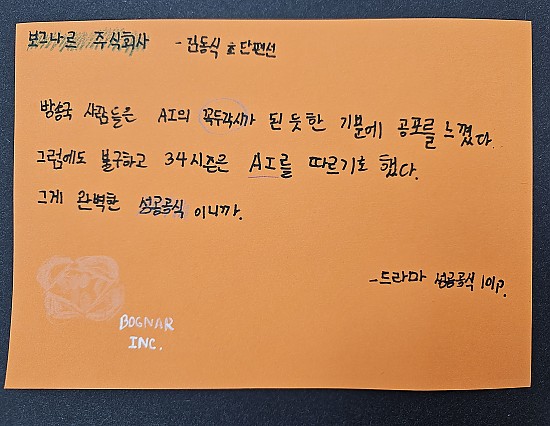 보그나르 주식회사 - 김동식 초단편선
방송국 사람들은 AI의 꼭두각시가 된 듯한 기분에 공포를 느꼈다.
그럼에도 불구하고 34시즌은 AI를 따르기로 했다.
그게 완벽한 성공공식 이니까.
- 드라마 성공공식 101p.
BOGNAR
INC.